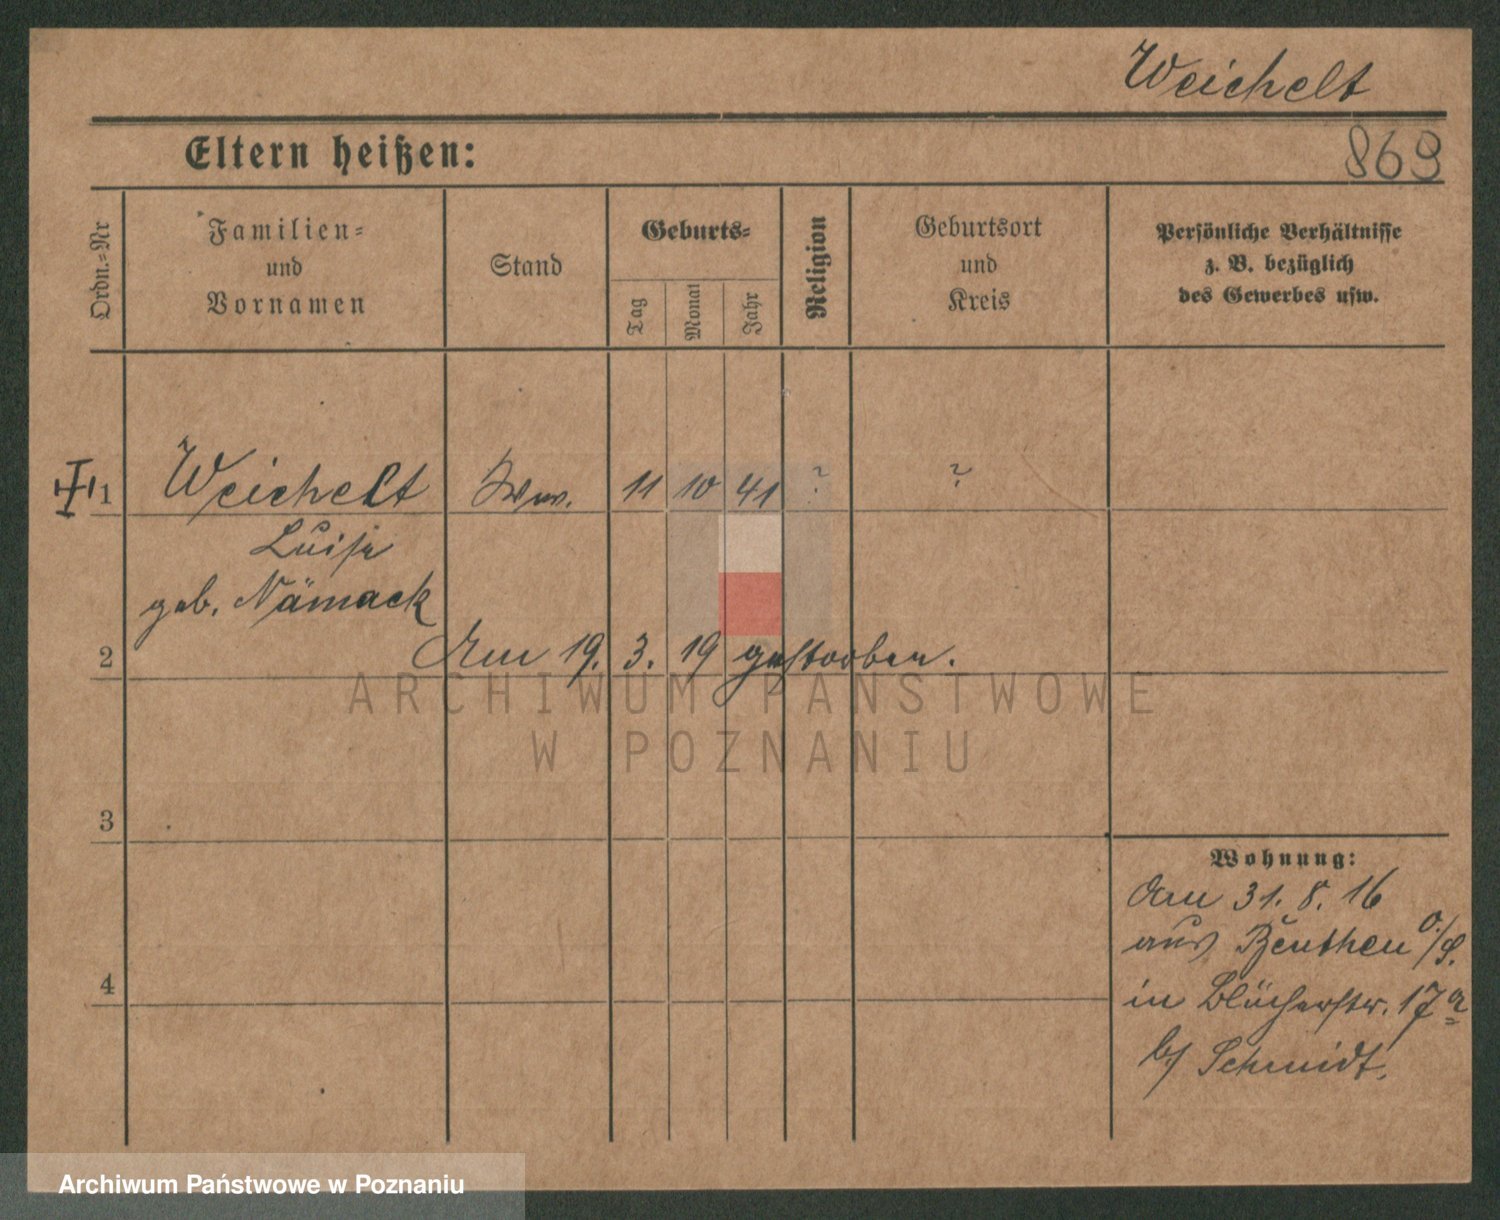 Weichelt
Eltern heißen:
869
Ordn.-Nr
Familien-
und
Vornamen
Stand
Geburts-
Tag
Monat
Jahr
Religion
Geburtsort
und
Kreis
Persönliche Verhältnisse
z. B. bezüglich
des Gewerbes usw.
1 Weichelt Ww. 11 10 41 ? ?
Luise
geb. Nämack
2 Am 19. 3. 19 gestorben.
ARCHIWUM PAŃSTWOWE
W POZNANIU
3
Wohnung:
Am 31. 8. 16
aus Beuthen O./S.
4
in Blücherstr. 17a
b/ Schmidt.
Archiwum Państwowe w Poznaniu